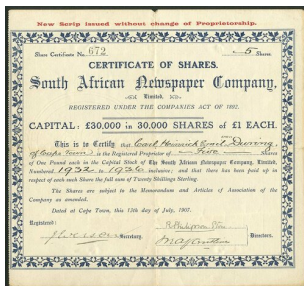 New Scrip issued without change of Proprietorship.
Share Certificate No. 672
5 Shares
CERTIFICATE OF SHARES.
South African Newspaper Company,
Limited.
REGISTERED UNDER THE COMPANIES ACT OF 1892.
CAPITAL: £30,000 in 30,000 SHARES of £1 EACH.
This is to Certify that Carl Heinrich Emil Duning
of Cape Town is the Registered Proprietor of Five Shares
of One Pound each in the Capital Stock of The South African Newspaper Company, Limited,
Numbered 1932 to 1936 inclusive; and that there has been paid up in
respect of each such Share the full sum of Twenty Shillings Sterling.
The Shares are subject to the Memorandum and Articles of Association of the
Company as amended.
Dated at Cape Town, this 12th day of July, 1907.
Registered:
Secretary.
Directors.